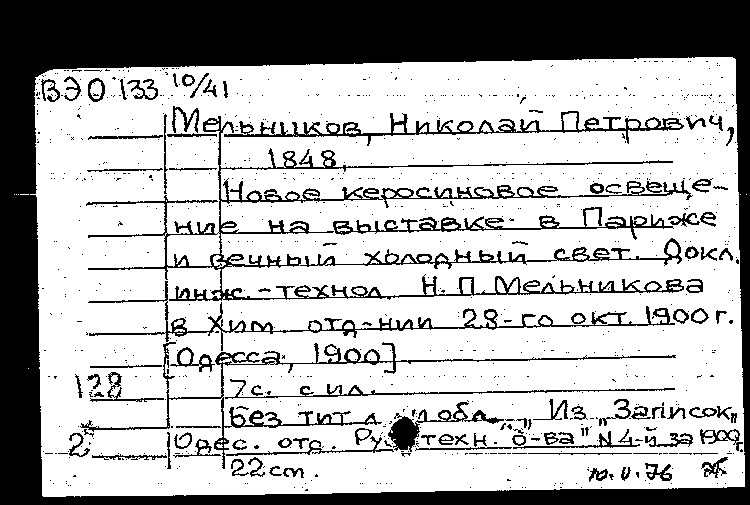 ВЭО 133 10/41
Мельников, Николай Петрович,
1848,
Новое керосиновое освеще-
ние на выставке в Париже
и вечный холодный свет. Докл.
инж.-технол. Н.П.Мельникова
в Хим. отд-нии 28-го окт. 1900г.
[Одесса, 1900].
128 7с. с ил.
Без тит л обл. „Из „Записок„
2 Одес. отд. Ру техн. о-ва" N4-й за 1900г.
22см. 10.V.76